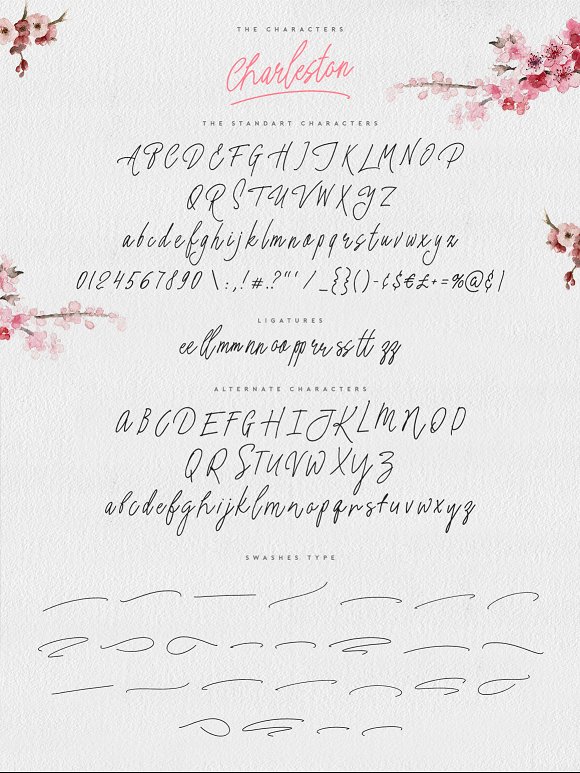 THE CHARACTERS
Charleston
THE STANDART CHARACTERS
ABCDEFGHIJKLMNOP
QRSTUVWXYZ
abcdefghijklmnopqrstuvwxyz
0124567890 \ : , ! #..? "' / _ {} () - ¢ $ € £ + = % @ ¢ |
LIGATURES
ee ll mm nn oo pp rr ss tt zz
ALTERNATE CHARACTERS
ABCDEFGHIJKLMNOP
QRSTUVWXYZ
abcdefghijklmnopqrstuvwxyz
SWASHES TYPE